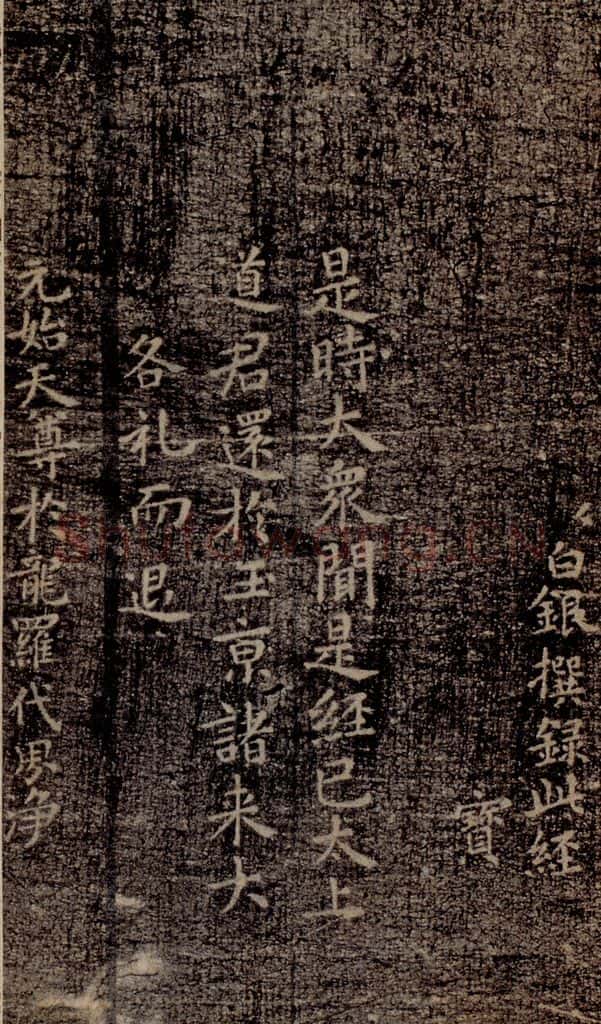 白銀撰録此経
寳
是時大衆聞是経已太上
道君還於玉京諸来大
各礼而退
元始天尊於龍羅代男净
shufawang.cn